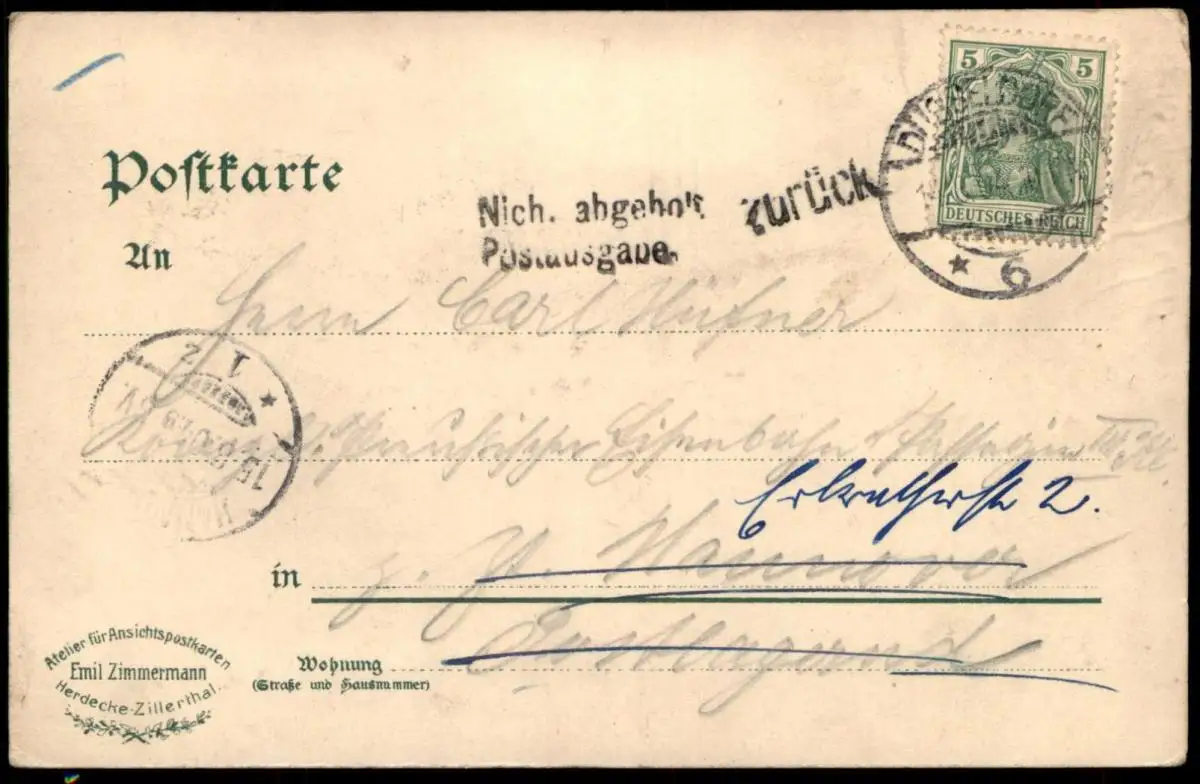 5 5
DÜSSELDORF
DEUTSCHES REICH
* 6
Postkarte
Nich. abgeholt
Postausgabe.
zurück
An
Herrn Carl Hüfner
1 2 *
15
Königl. Preußischer Eisenbahn
Erkratherstr 2.
in z. Z. Hannover
Wohnung Postlagernd
(Straße und Hausnummer)
Atelier für Ansichtspostkarten
Emil Zimmermann
Herdecke-Zillerthal.